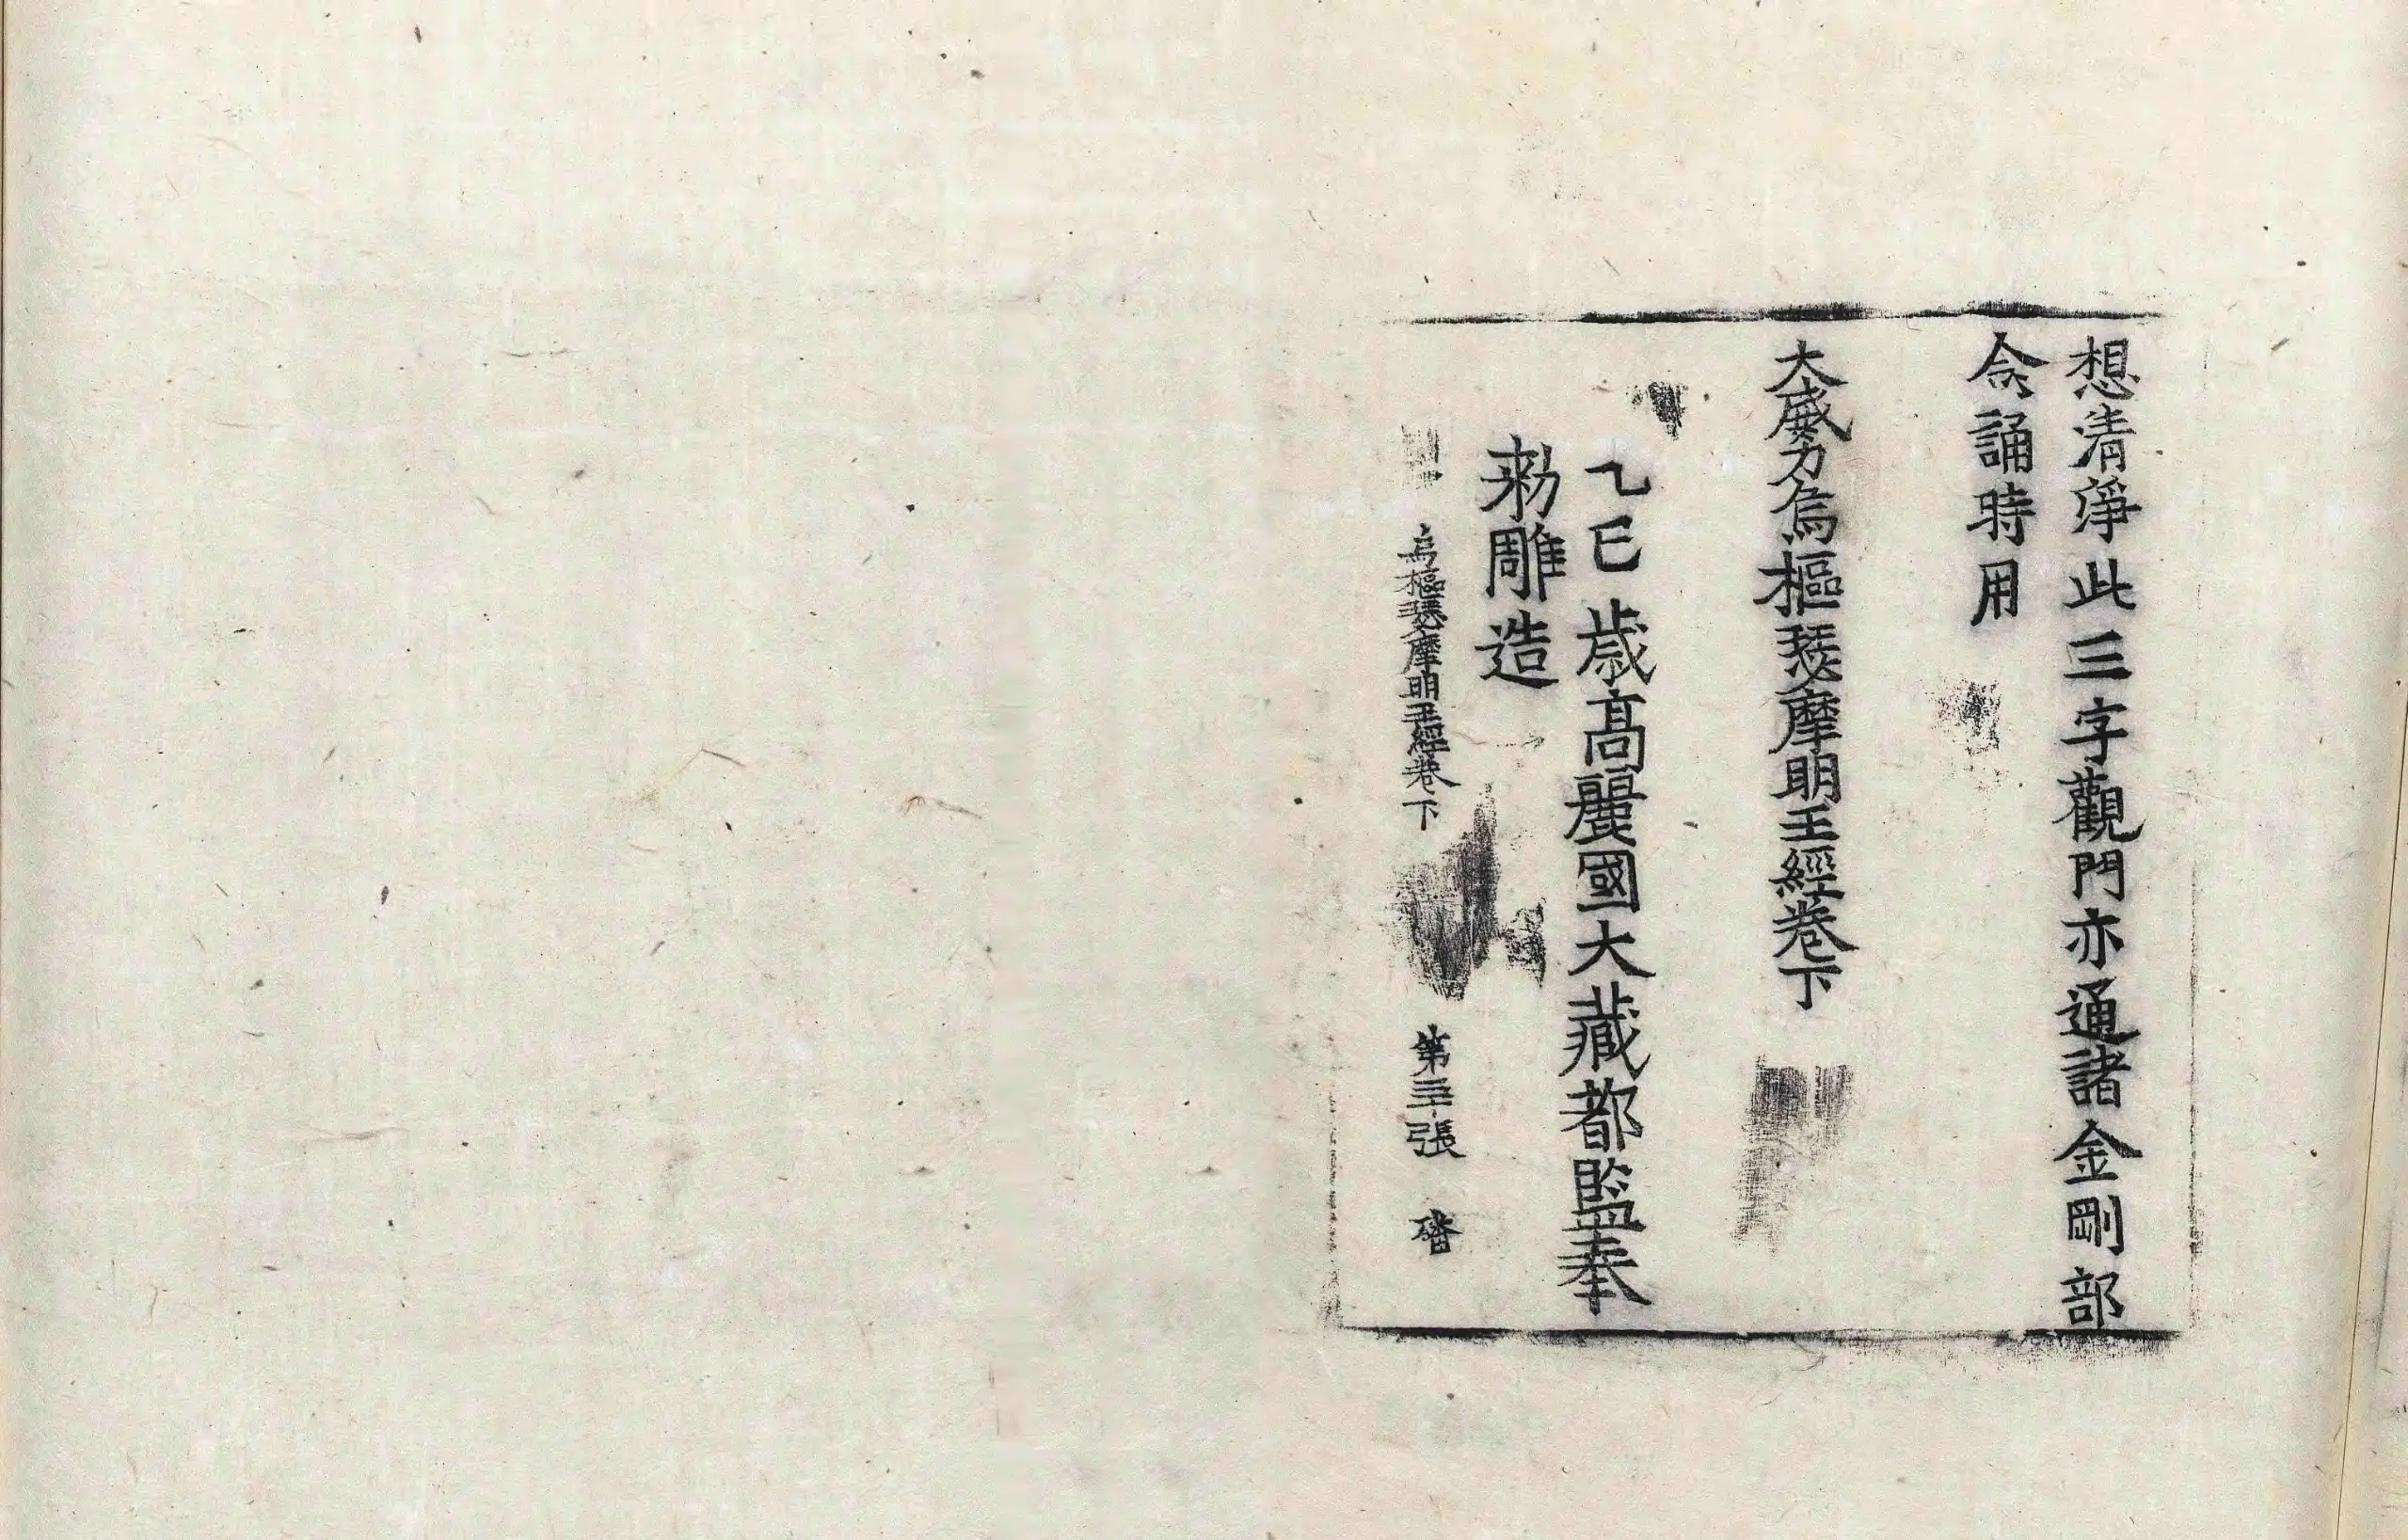 想清淨此三字觀門亦通諸金剛部
念誦時用
大威力烏樞瑟摩明王經卷下
乙巳歲高麗國大藏都監奉
勑雕造
烏樞瑟摩明王經卷下 第三十張 磻